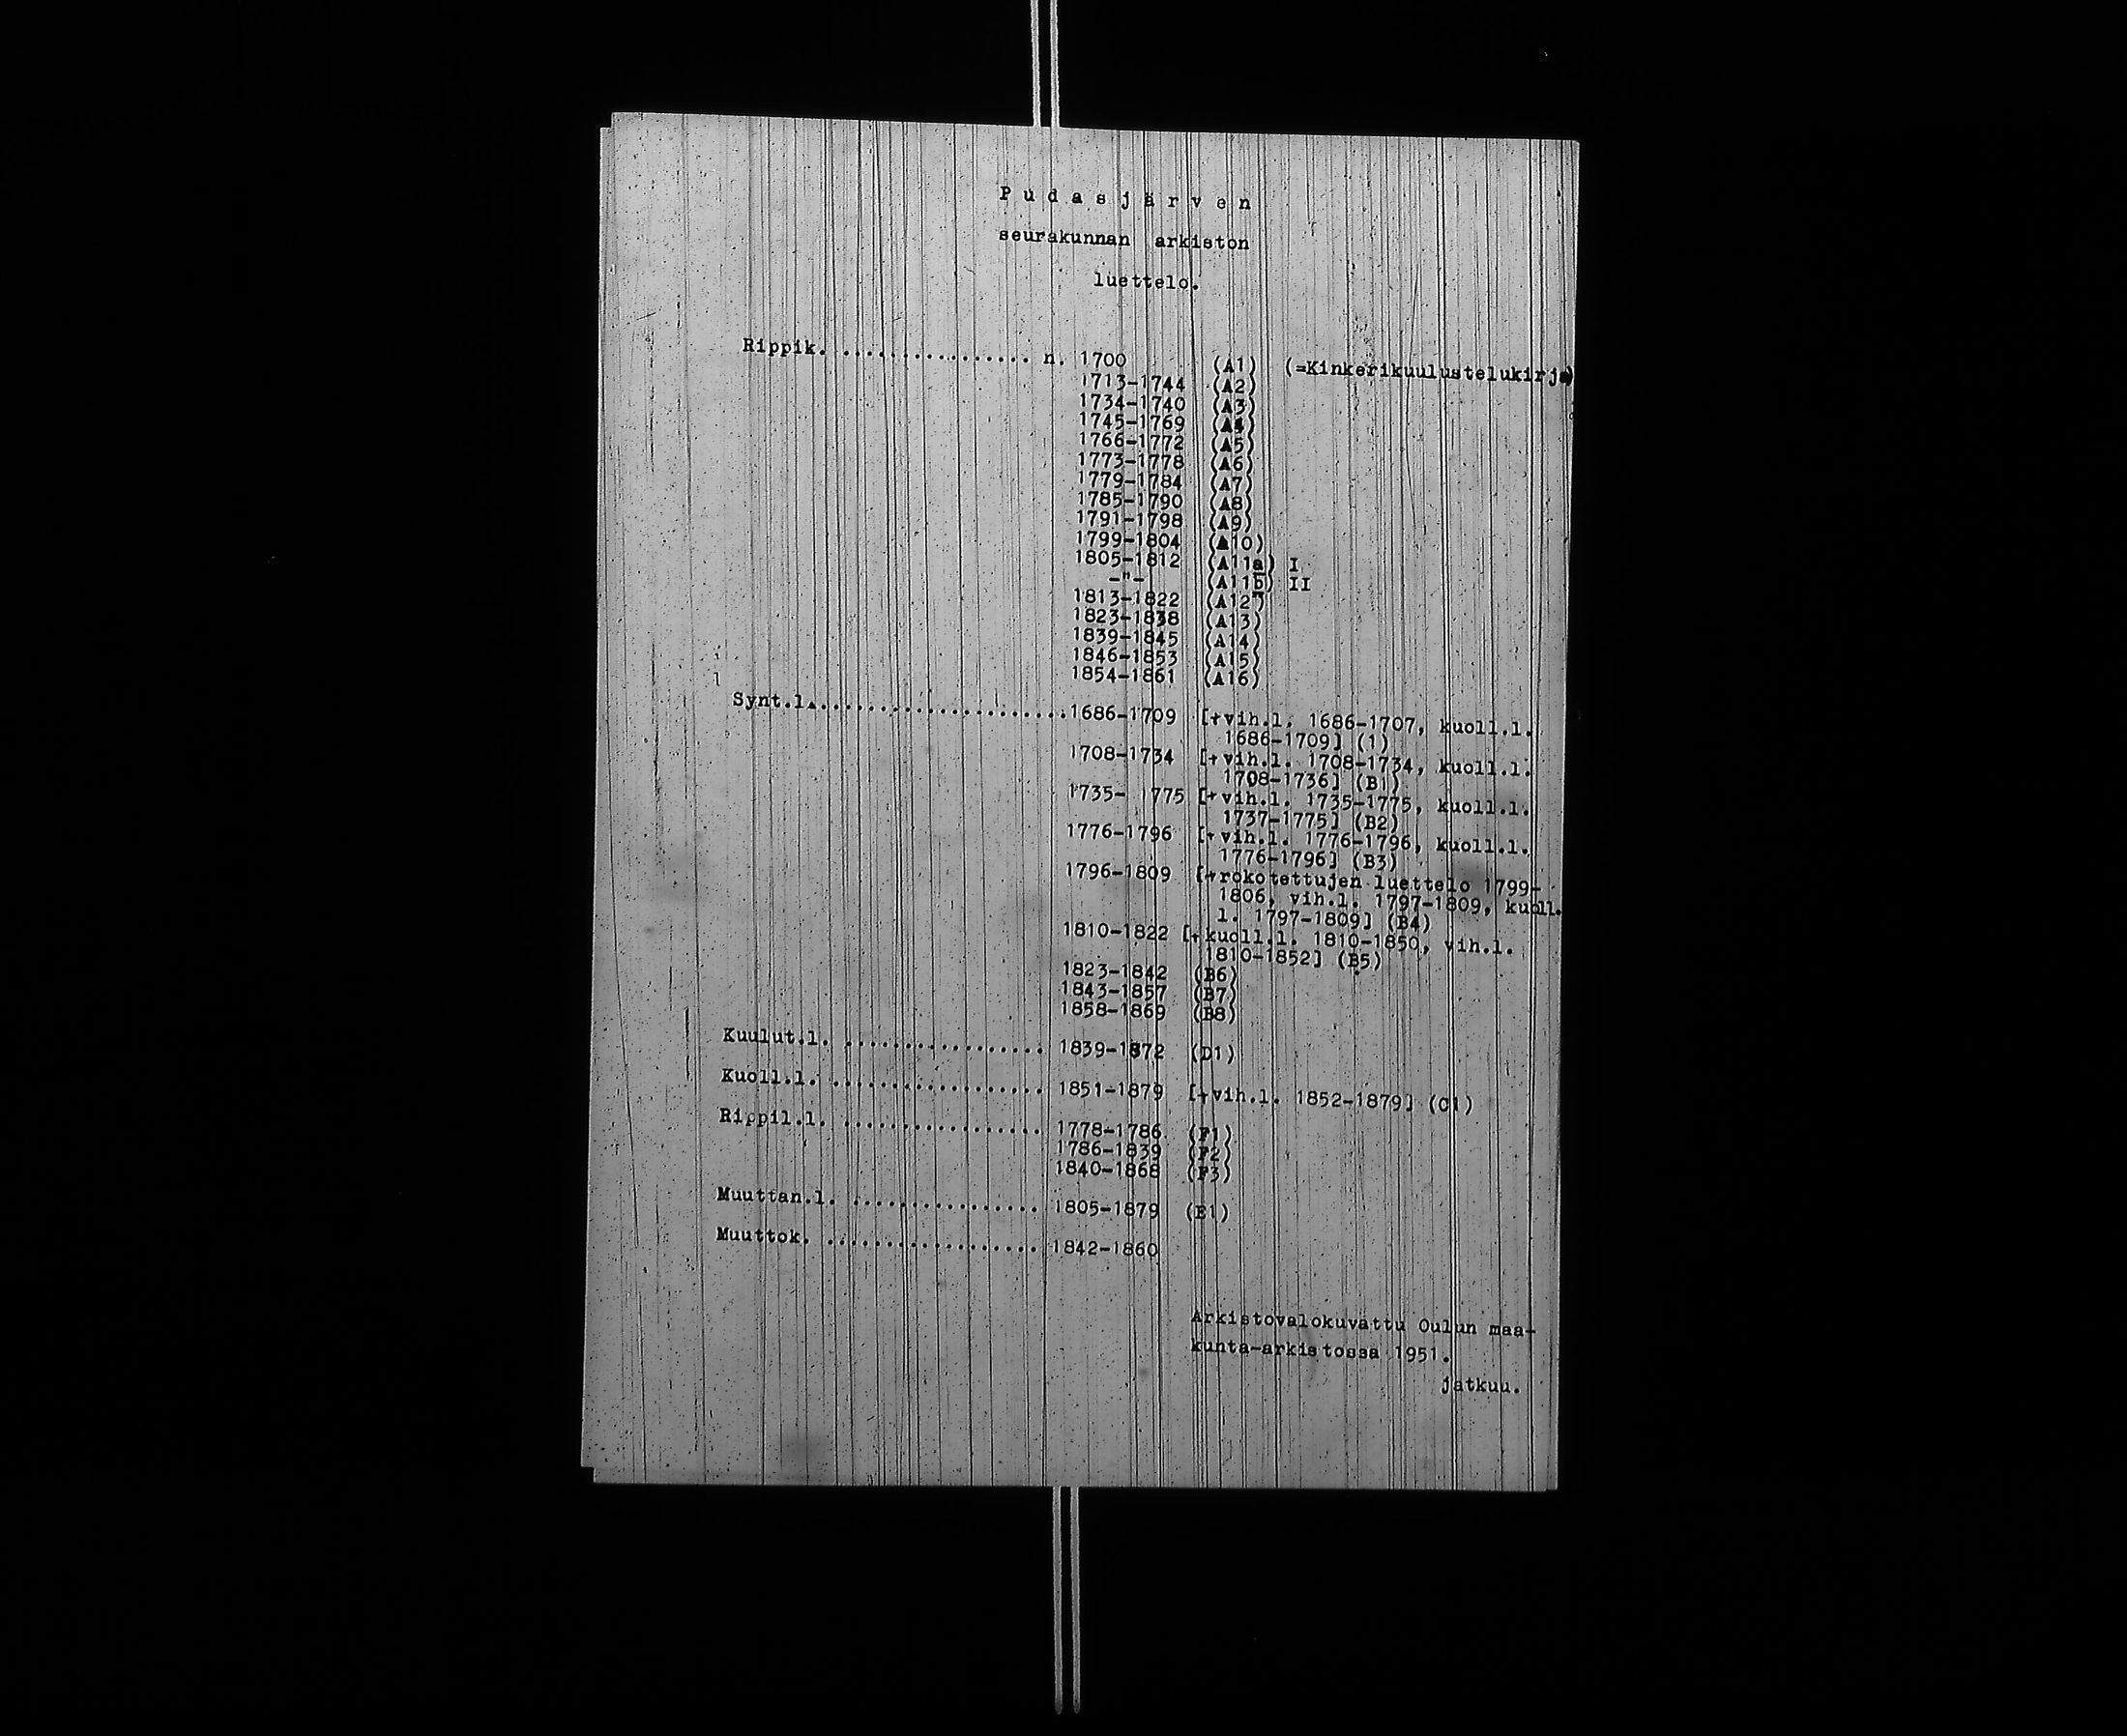 Pudasjärven
seurakunnan arkiston
luettelo.
Rippik. ................ n. 1700 (A1) (=Kinkerikuulustelukirja)
1713-1744 (A2)
1734-1740 (A3)
1745-1769 (A4)
1766-1772 (A5)
1773-1778 (A6)
1779-1784 (A7)
1785-1790 (A8)
1791-1798 (A9)
1799-1804 (A10)
1805-1812 (A11a) I
-"- (A11b) II
1813-1822 (A12)
1823-1838 (A13)
1839-1845 (A14)
1846-1853 (A15)
1854-1861 (A16)
Synt.l......................1686-1709 [+vih.l. 1686-1707, kuoll.l.
1686-1709] (1)
1708-1734 [+vih.l. 1708-1734, kuoll.l.
1708-1736] (B1)
1735- 1775 [+vih.l. 1735-1775, kuoll.l.
1737-1775] (B2)
1776-1796 [+vih.l. 1776-1796, kuoll.l.
1776-1796] (B3)
1796-1809 [+rokotettujen luettelo 1799-
1806, vih.l. 1797-1809, kuoll.
l. 1797-1809] (B4)
1810-1822 [+kuoll.l. 1810-1850, vih.l.
1810-1852] (B5)
1823-1842 (B6)
1843-1857 (B7)
1858-1869 (B8)
Kuulut.l. ................. 1839-1872 (D1)
Kuoll.l. .................. 1851-1879 [+vih.l. 1852-1879] (C1)
Rippil.l. ................. 1778-1786 (F1)
1786-1839 (F2)
1840-1868 (F3)
Muuttan.l. ................ 1805-1879 (E1)
Muuttok. .................. 1842-1860
Arkistovalokuvattu Oulun maa-
kunta-arkistossa 1951.
jatkuu.